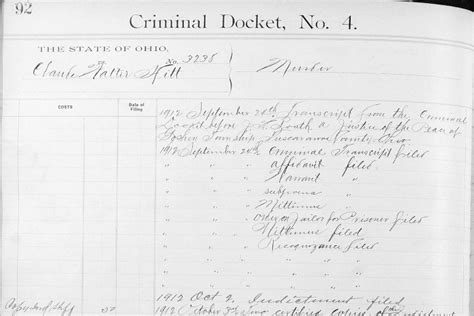 92
Criminal Docket, No. 4.
THE STATE OF OHIO,
vs. No. 3238
Murder
Claude Walter Hill
COSTS
Date of Filing
1912 September 24th Transcript from the Criminal
Docket before South a Justice of the Peace of
Township Tuscarawas County Ohio
1912 September 24th Criminal Transcript filed
" " " affidavit filed
" " " Warrant "
" " " subpoena "
" " " Mittimus "
" " " order on Jailor for Prisoner filed
" " " Mittimus filed
" " " Recognizance filed
1912 Oct 2. Indictment filed
1912 October 3rd two certified copies of Indictment